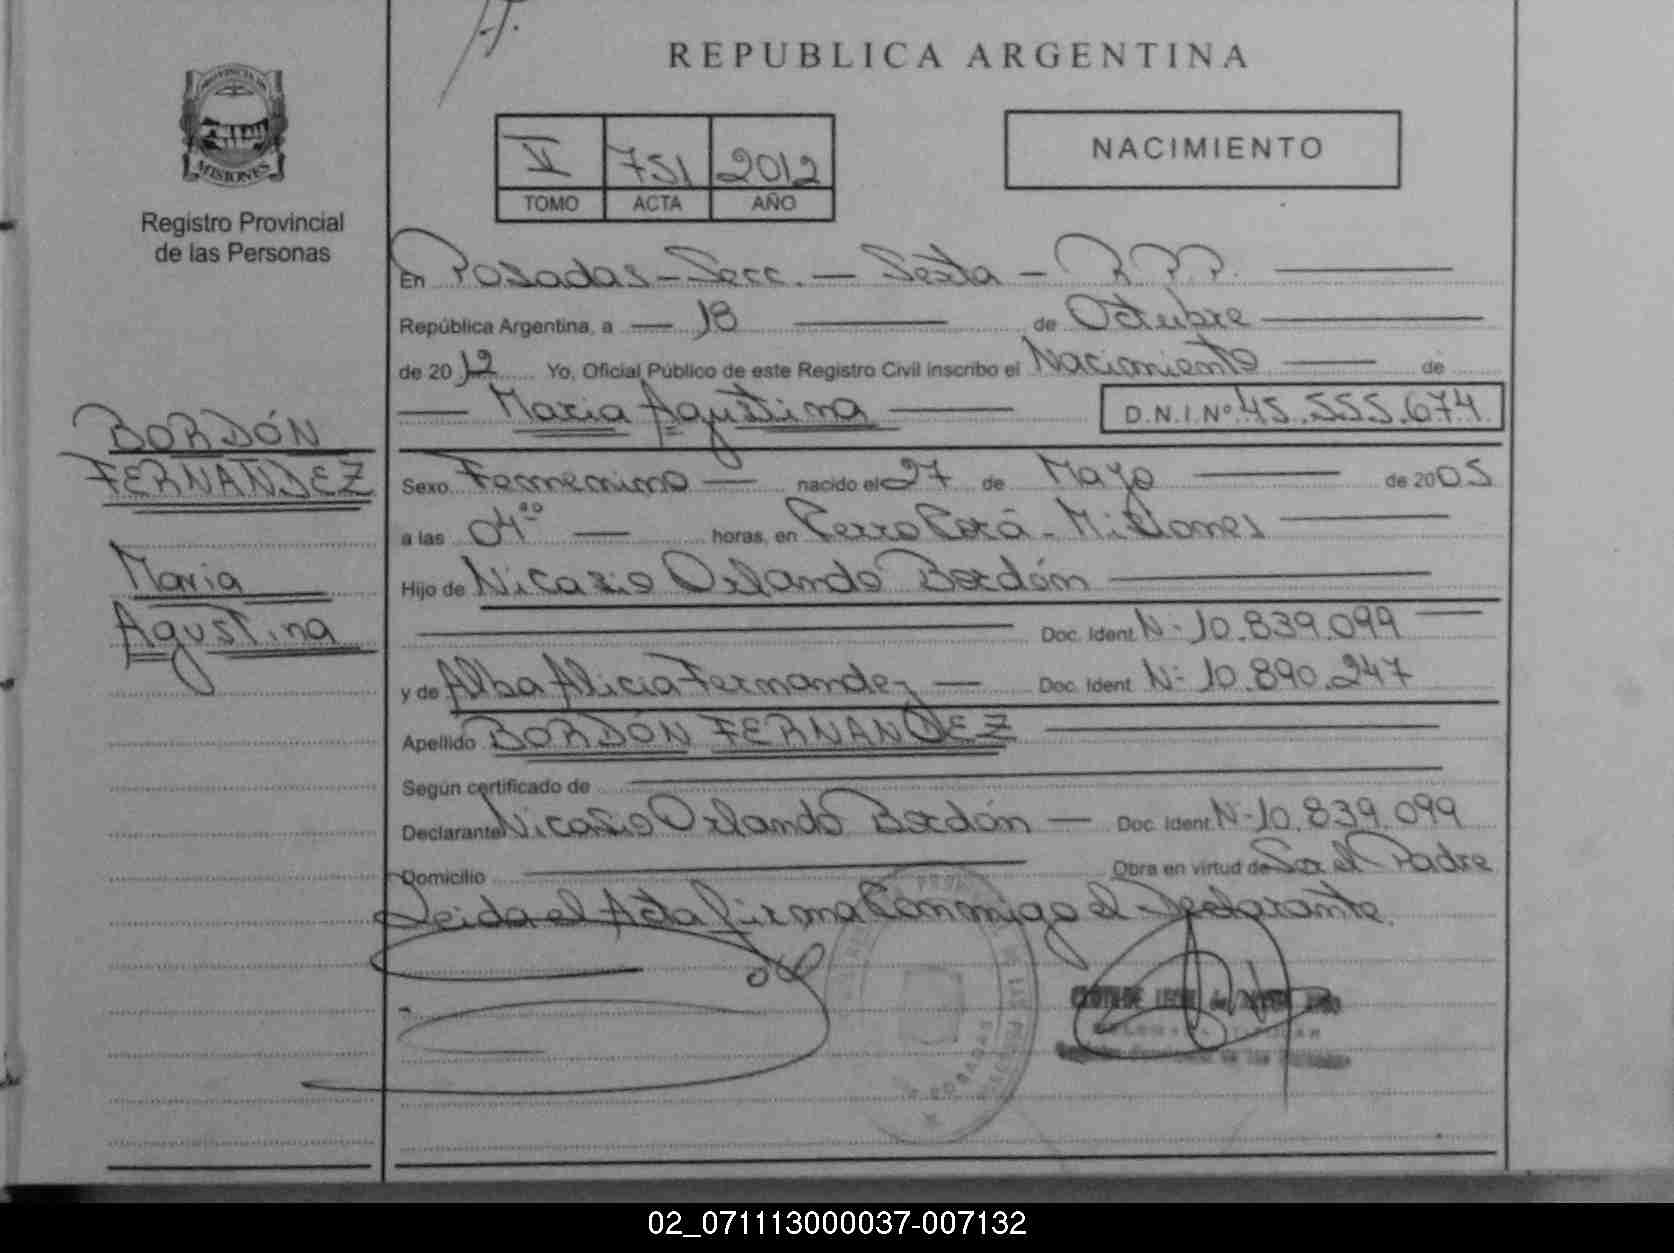 REPUBLICA ARGENTINA
PROVINCIA DE
MISIONES
Registro Provincial
de las Personas
V 751 2012
TOMO ACTA AÑO
NACIMIENTO
En Posadas - Secc. - Sexta - R.P.P.
República Argentina, a 18 de Octubre
de 2012 Yo, Oficial Público de este Registro Civil inscribo el Nacimiento de
Maria Agustina D.N.I.Nº 45.555.674
BORDÓN
FERNANDEZ
Maria
Agustina
Sexo Femenino nacido el 27 de Mayo de 2005
a las 04 horas, en Cerro Corá - Misiones
Hijo de Nicasio Orlando Bordón
Doc. Ident. N- 10.839.099
y de Alba Alicia Fernandez Doc. Ident. N- 10.890.247
Apellido BORDÓN FERNANDEZ
Según certificado de
Declarante Nicasio Orlando Bordón Doc. Ident. N- 10.839.099
Domicilio Obra en virtud de Ser el Padre
Leida el Acta firma Conmigo el Declarante.
POSADAS
02_071113000037-007132